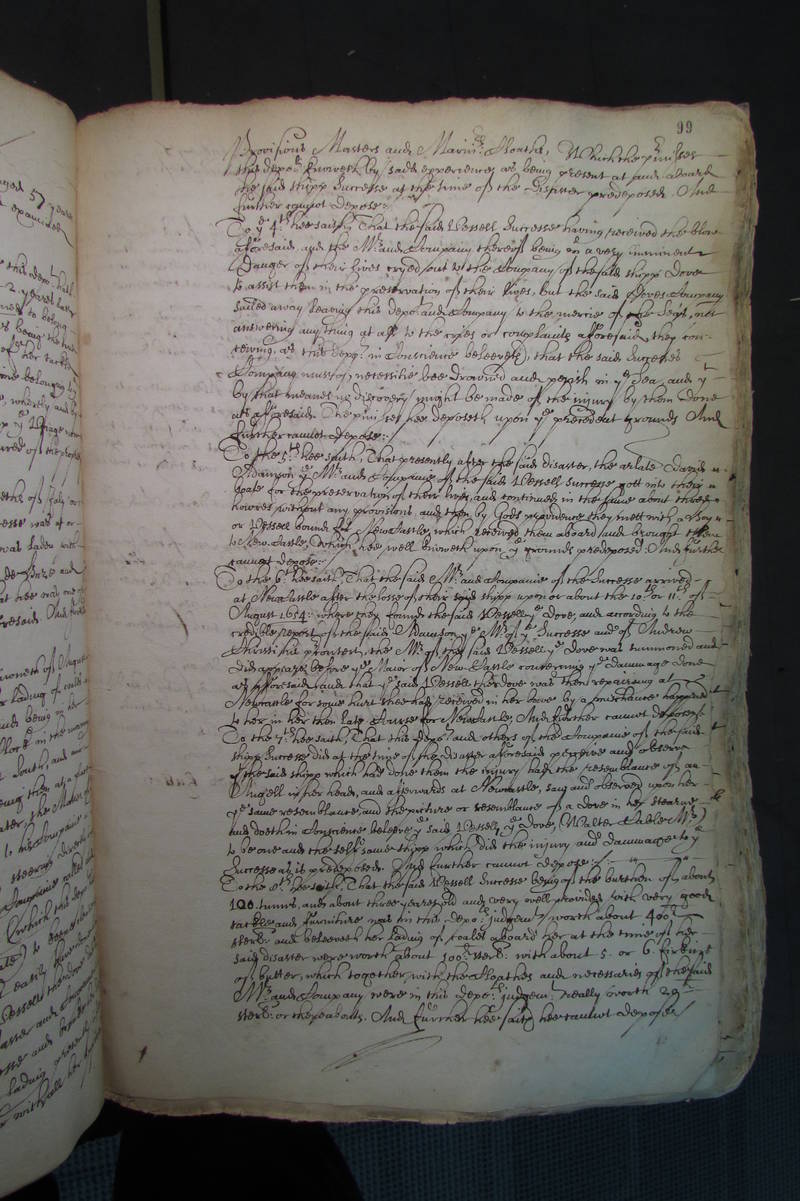 99
Provisions Masters and Marin:rs Cloaths, Which the pmisses
this depo:t knoweth by said experience, as being present at and aboard
the said shipp Successe at the time of the disaster predeposed. And
further cannot depose:
To ye 4:th hee saith, That the said Vessell Successe having received the blow
aforesaid, and the Mr: and Company thereof being in a very iminent
Danger of their lives cryed out to the Company of the said shipp Dove
to assist them in the preservation of their lives, but the said Doves Company
sailed away leaving this depo:t and Company to the mercie of the Seas, not
answering any thing at all to the cryes or complaints afforesaid, they con=
ceiving, as this depo:t in Conscience beleeveth, that the said Successes
Company must of necessitie bee drowned and perish in ye Sea, and yt
by that meanes no discovery might be made of the injury by them done
as aforesaid. The pmisses hee deposeth upon ye precedent grounds And
further cannot depose:
To the 5:th hee saith, That presently after the said disaster, the arlate David
Adamson ye Mr: and Companie of the said Vessell Successe gott into their
boate for the preservation of their lives, and continued in the same about three
howres without any provisions, and then by Gods providence they mett with a Hoy
or Vessell bound for NewCastle, which received them aboard, and brought them
to New-Castle, Which hee well knoweth upon ye grounds predeposed: And further
cannot depose:
To the 6:th hee saith, That the said Mr: and Companie of the Successe arrived
at NewCastle after the losse of their said shipp upon or about the 10:th or 11:th of
August 1654: where they found the said Vessell ye Dove, and according to the
credible report of the said Adamson ye Mr: of ye Successe and of Andrew
the Mr: of that said Vessell ye Dove was summoned and
did appeare before ye Maior of New-Castle concerning ye dammage done
as afforesaid, and that ye said Vessell the Dove was then repairing at
Newcastle for some hurt shee had received in her bowe by a mischance happned
to her in her then late Course for NewCastle, And further cannot depose:
To the 7:th hee saith, That this depo:t and others of the Companie of the said
shipp Successe did at the time of the disaster afforesaid perceive and observe
yt the said shipp which had done them the injury had the resemblance of an
Angell in her head, and afterwards at Newcastle, saw and observed upon her
ye same resemblance, and the picture or resemblance of a dove in her stearne
and doeth in Conscience beleeve ye said Vessell ye Dove, (Walter Cable Mr:)
to be one and the selfe same shipp which did the injury and dammage to ye
Successe as is predeposed. And further cannot depose:
To the 8:th hee saith, That the said Vessell Successe being of the burthen of about
120 tunns, and about three yeares old and very well provided with very good
tackle and furniture was in this depo:ts judgem:t worth about 400:li
sterl: and beleeveth her lading of coales aboard her at the time of her
said disaster were worth about 100:li sterl: with about 5 or 6 firkins
of butter, which together with the Cloathes and necessaries of the said
Mr: and Company were in this depo:ts judgem:t really worth
sterl: or thereabouts. And further hee saith hee cannot depose